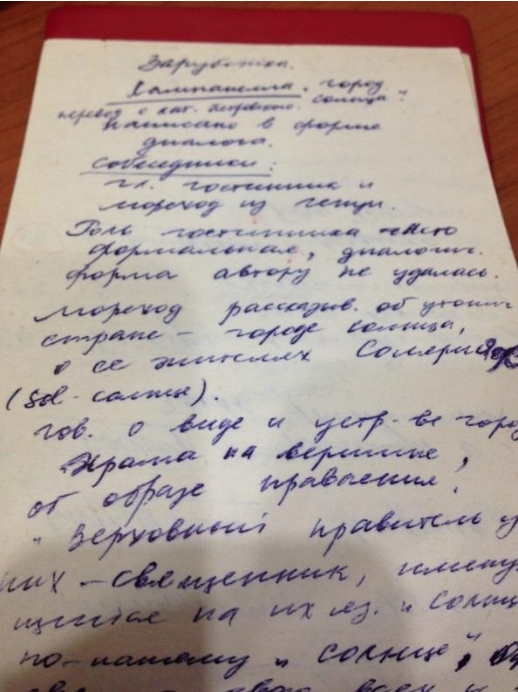 Зарубежка.
Кампанелла „Город
перевод с лат. Петровского. Солнца“.
Написано в форме
диалога.
Собеседники:
гл. гостинник и
мореход из Генуи.
Роль гостинника чисто
формальная, диалогич.
форма автору не удалась.
Мореход рассказыв. об утопич
стране – городе солнца,
о её жителях Соляриях
(sol - солнце).
гов. о виде и устр-ве город
храма на вершине,
об образе правления.
„Верховный правитель у
них – священник, имену
щийся на их яз. „Солнц
по-нашему „солнце“,